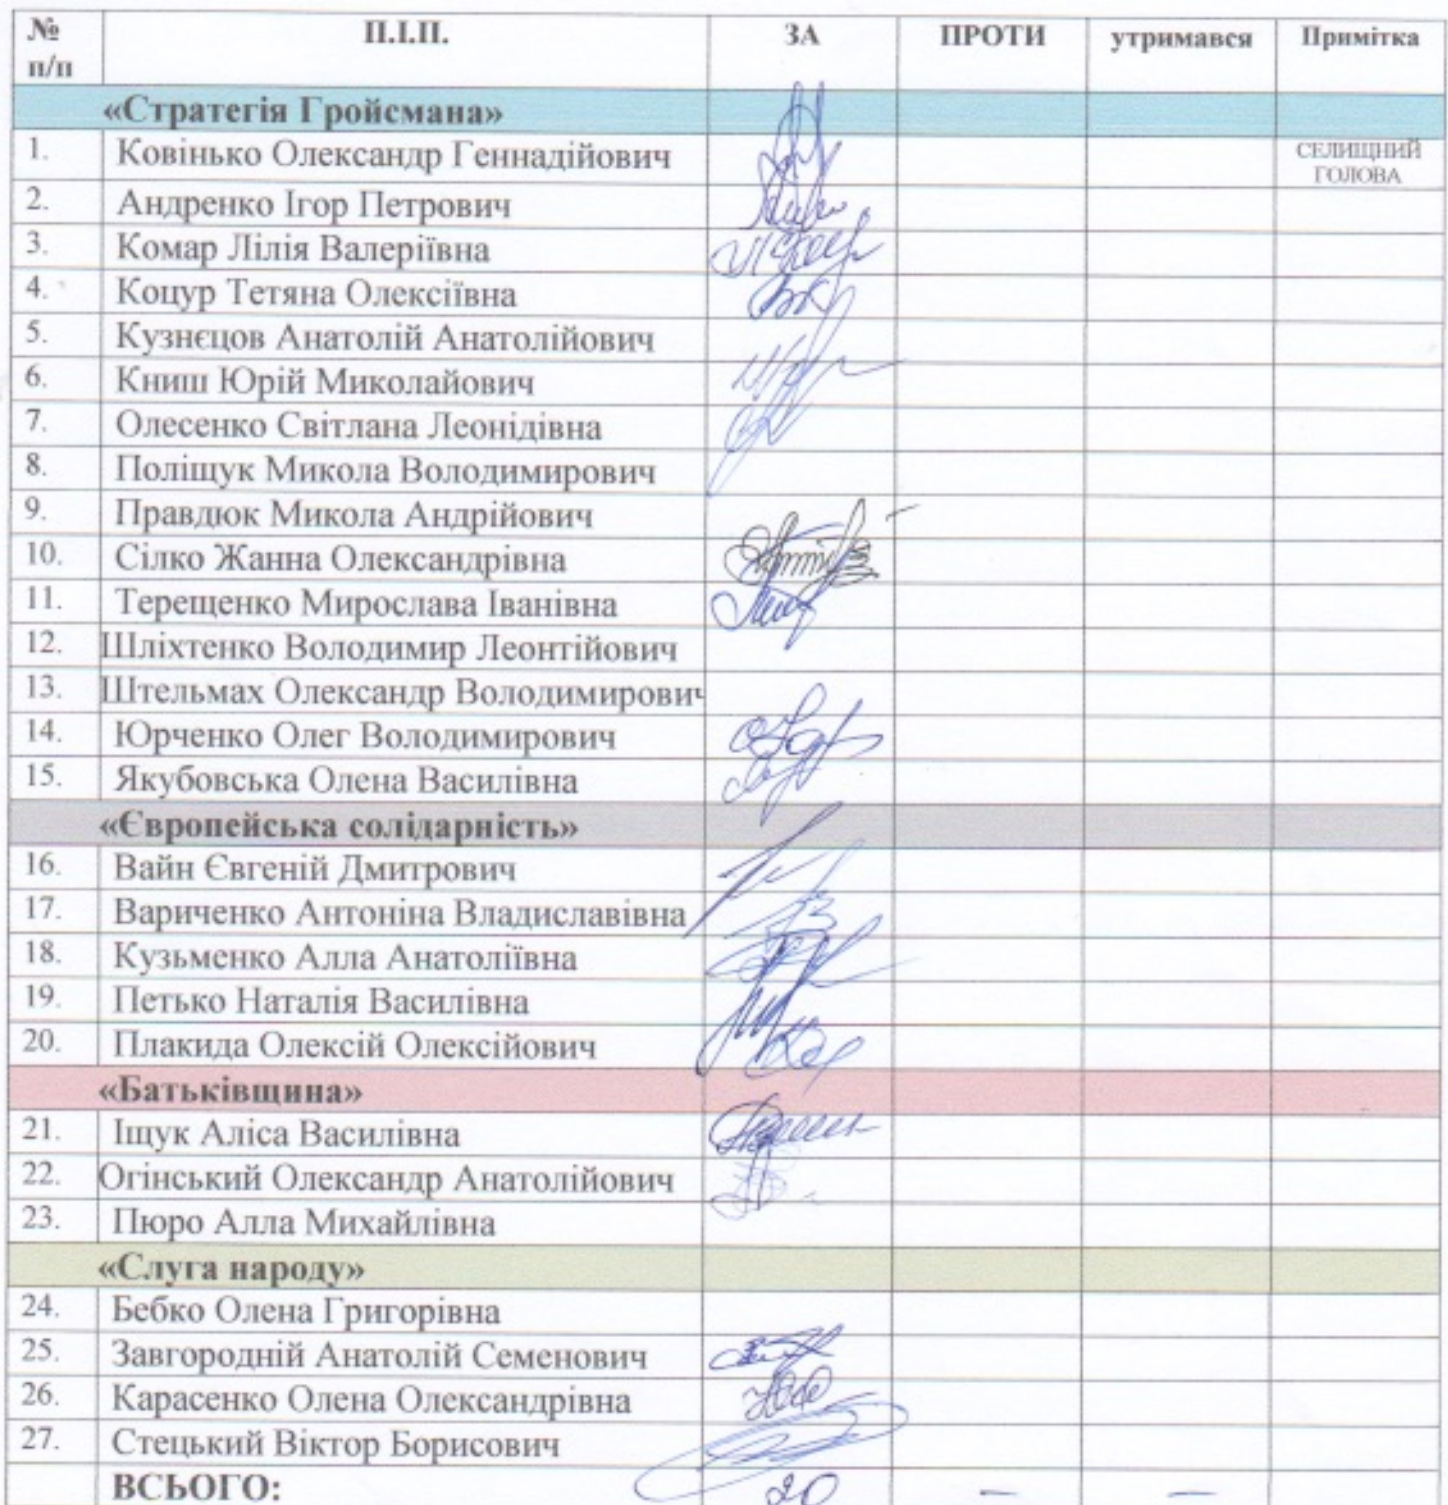 № П.І.П. ЗА ПРОТИ утримався Примітка
п/п
«Стратегія Гройсмана»
1. Ковінько Олександр Геннадійович СЕЛИЩНИЙ
ГОЛОВА
2. Андренко Ігор Петрович
3. Комар Лілія Валеріївна
4. Коцур Тетяна Олексіївна
5. Кузнєцов Анатолій Анатолійович
6. Книш Юрій Миколайович
7. Олесенко Світлана Леонідівна
8. Поліщук Микола Володимирович
9. Правдюк Микола Андрійович
10. Сілко Жанна Олександрівна
11. Терещенко Мирослава Іванівна
12. Шліхтенко Володимир Леонтійович
13. Штельмах Олександр Володимирович
14. Юрченко Олег Володимирович
15. Якубовська Олена Василівна
«Європейська солідарність»
16. Вайн Євгеній Дмитрович
17. Вариченко Антоніна Владиславівна
18. Кузьменко Алла Анатоліївна
19. Петько Наталія Василівна
20. Плакида Олексій Олексійович
«Батьківщина»
21. Іщук Аліса Василівна
22. Огінський Олександр Анатолійович
23. Пюро Алла Михайлівна
«Слуга народу»
24. Бебко Олена Григорівна
25. Завгородній Анатолій Семенович
26. Карасенко Олена Олександрівна
27. Стецький Віктор Борисович
ВСЬОГО: 20 — —